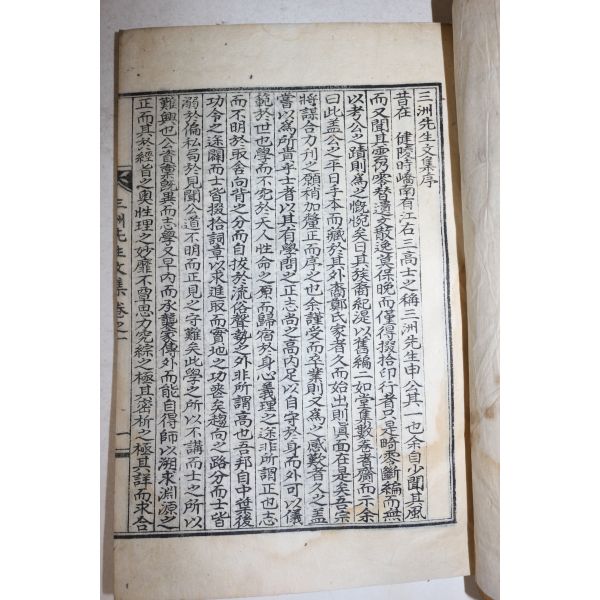 三洲先生文集序
昔在 健陵時嶠南有江右三高士之稱三洲先生申公其一也余自少聞其風
而又聞其雲仍零替遺文散逸莫保晚而僅得掇拾印行者只是畸零斷編而無
以考公之蹟則爲之慨惋矣日其族裔紀湜以舊編二如堂藁數卷書齎而示余
曰此盖公之平日手本而藏於其外裔鄭氏家者久而始出則眞面在是矣吾宗
將謀合力刋之願稍加釐正而序之也余謹受而卒業則又爲之感歎者久之盖
嘗以爲所貴乎士者以其有學問之正志尚之高內足以自守於身而外可以儀
範於世也學而不究於天人性命之原而歸宿於身心義理之途非所謂正也志
而不明於取舍向背之分而自拔於流俗聲勢之外非所謂高也吾邦自中葉後
功令之途闢而士皆掇拾詞章以求進取而實地之功喪矣趨向之路分而士皆
溺於偏私苟於見聞公道不明而正見之守難矣此學之所以不講而士之所以
難興也公資稟旣異而志學又早內而永襲家傳外而能自得師以溯求淵源之
正而其於經旨之奧性理之妙靡不覃思力究綜之極其密析之極其詳而求合
三洲先生文集 卷之一
一